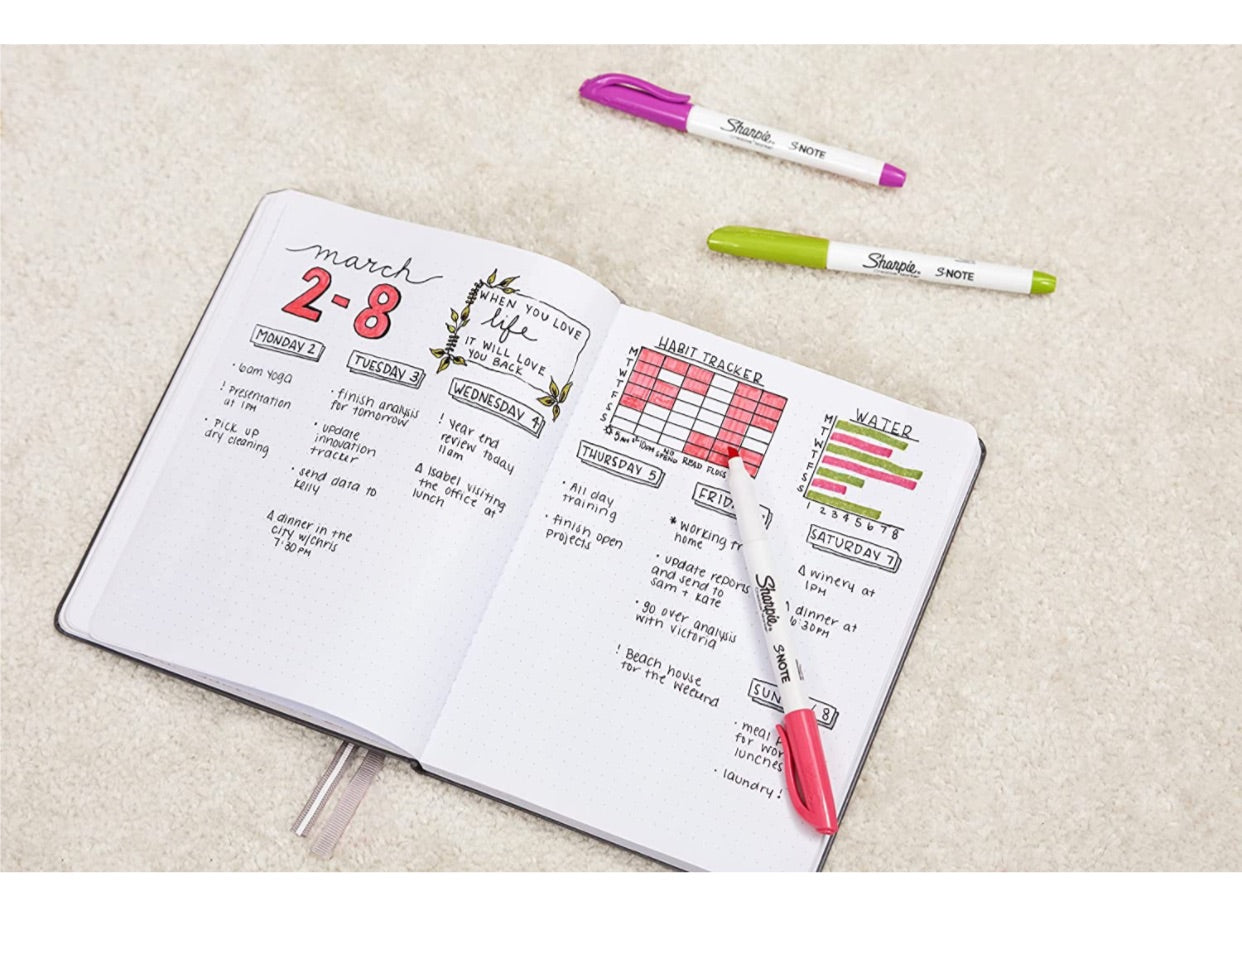 Sharpie
S·NOTE
Sharpie
S·NOTE
march
2-8
WHEN YOU LOVE
life
IT WILL LOVE
YOU BACK
MONDAY 2
· 6am yoga
! Presentation
at 1PM
· PICK UP
dry cleaning
TUESDAY 3
· finish analysis
for tomorrow
· update
innovation
tracker
· send data to
Kelly
Δ dinner in the
city w/chris
7:30PM
WEDNESDAY 4
! Year end
review today
11am
Δ Isabel visiting
the office at
lunch
HABIT TRACKER
M
T
W
T
F
S
S
5AM
10PM
NO
SPEND
READ
FLOSS
WATER
M
T
W
T
F
S
S
1 2 3 4 5 6 7 8
THURSDAY 5
· All day
training
· finish open
projects
FRID
* working fr
home
· update reports
and send to
sam + kate
· go over analysis
with victoria
! Beach house
for the weekend
SATURDAY 7
Δ winery at
1PM
Δ dinner at
6:30PM
SUN 8
· meal p
for wor
lunches
· laundry!
Sharpie
S·NOTE